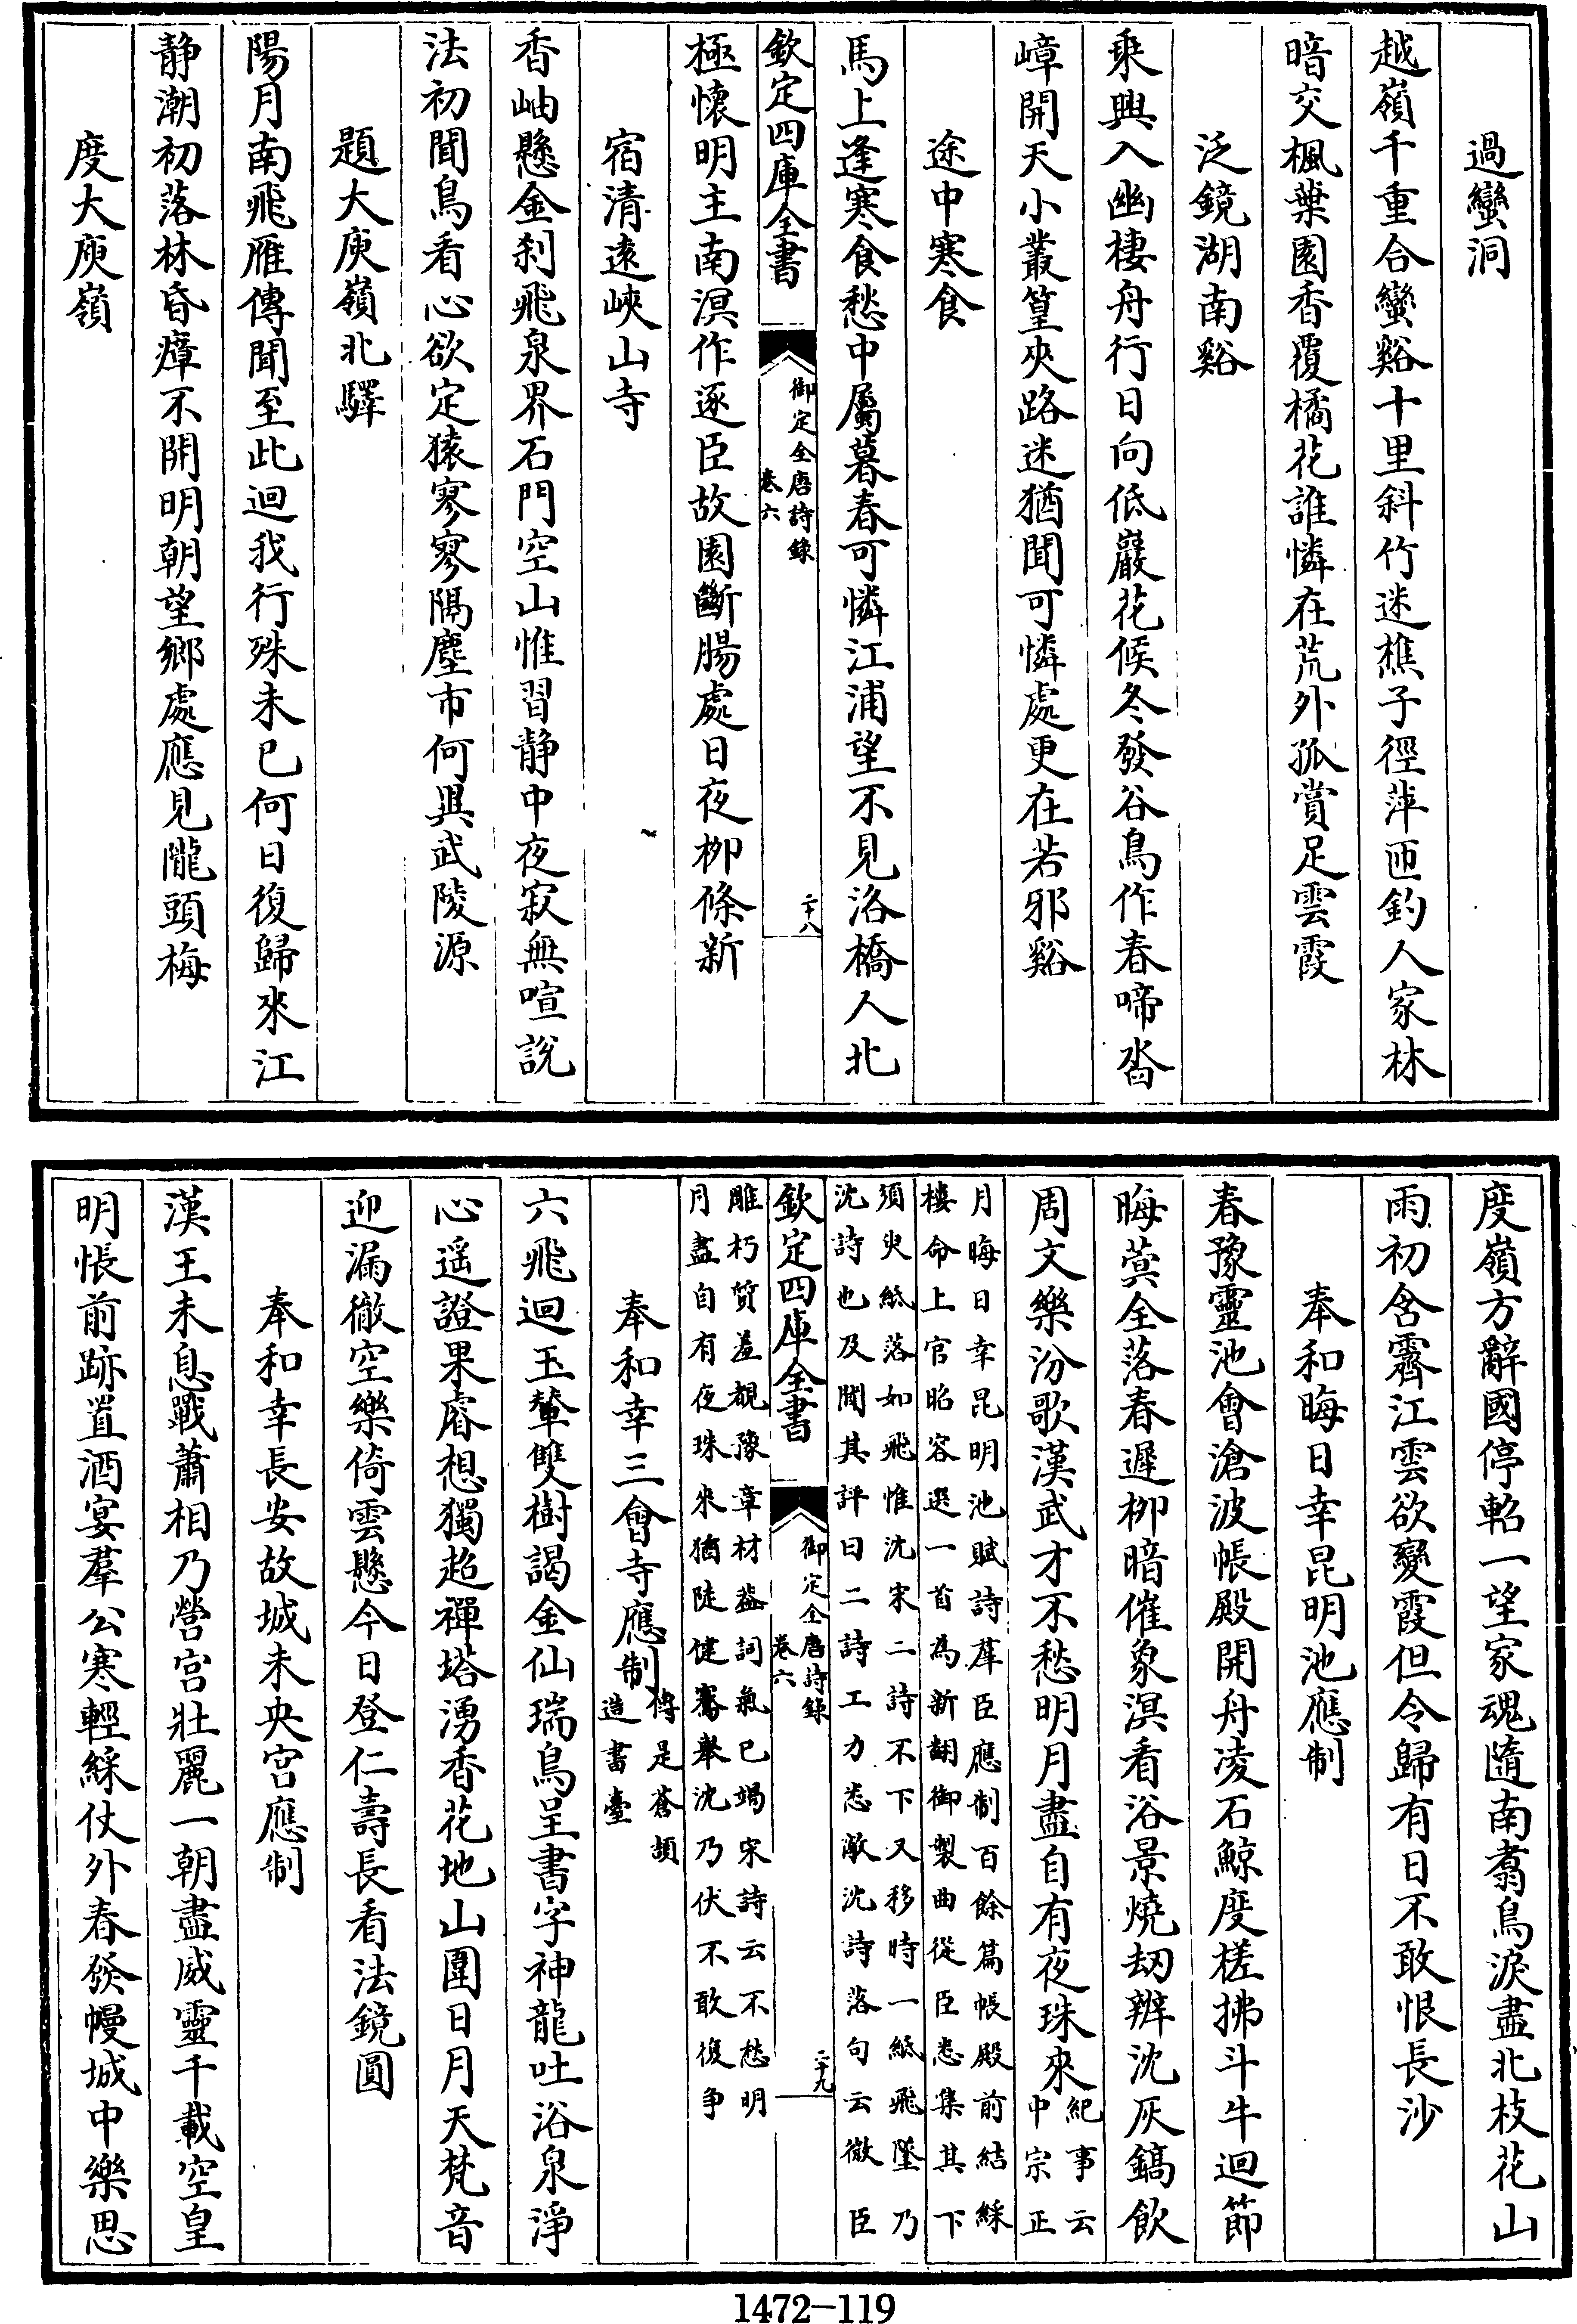 過蠻洞
越嶺千重合蠻谿十里斜竹迷樵子徑萍匝釣人家林
暗交楓葉園香覆橘花誰憐在荒外孤賞足雲霞
泛鏡湖南谿
乘興入幽棲舟行日向低巖花候冬發谷鳥作春啼沓
嶂開天小叢篁夾路迷猶聞可憐處更在若邪谿
途中寒食
馬上逢寒食愁中屬暮春可憐江浦望不見洛橋人北
欽定四庫全書
御定全唐詩錄
卷六
二十八
極懷明主南溟作逐臣故園斷腸處日夜柳條新
宿清遠峽山寺
香岫懸金刹飛泉界石門空山惟習静中夜寂無喧說
法初聞鳥看心欲定猿寥寥隔塵市何異武陵源
題大庾嶺北驛
陽月南飛雁傳聞至此迴我行殊未已何日復歸來江
静潮初落林昏瘴不開明朝望鄉處應見隴頭梅
度大庾嶺
度嶺方辭國停軺一望家魂隨南翥鳥淚盡北枝花山
雨初含霽江雲欲變霞但令歸有日不敢恨長沙
奉和晦日幸昆明池應制
春豫靈池會滄波帳殿開舟凌石鯨度槎拂斗牛迴節
晦蓂全落春遲柳暗催象溟看浴景燒刼辨沈灰鎬飲
周文樂汾歌漢武才不愁明月盡自有夜珠來
紀事云
中宗正
月晦日幸昆明池賦詩羣臣應制百餘篇帳殿前結綵
樓命上官昭容選一首為新翻御製曲從臣悉集其下
須臾紙落如飛惟沈宋二詩不下又移時一紙飛墜乃
沈詩也及聞其評曰二詩工力悉敵沈詩落句云微臣
欽定四庫全書
御定全唐詩錄
卷六
二十九
雕朽質羞覩豫章材葢詞氣已竭宋詩云不愁明
月盡自有夜珠來猶陡健騫舉沈乃伏不敢復争
奉和幸三會寺應制
傳是蒼頡
造書臺
六飛迴玉輦雙樹謁金仙瑞鳥呈書字神龍吐浴泉淨
心遥證果睿想獨超禪塔湧香花地山圍日月天梵音
迎漏徹空樂倚雲懸今日登仁壽長看法鏡圓
奉和幸長安故城未央宫應制
漢王未息戰蕭相乃營宫壯麗一朝盡威靈千載空皇
明悵前跡置酒宴羣公寒輕綵仗外春發幔城中樂思
1472—119